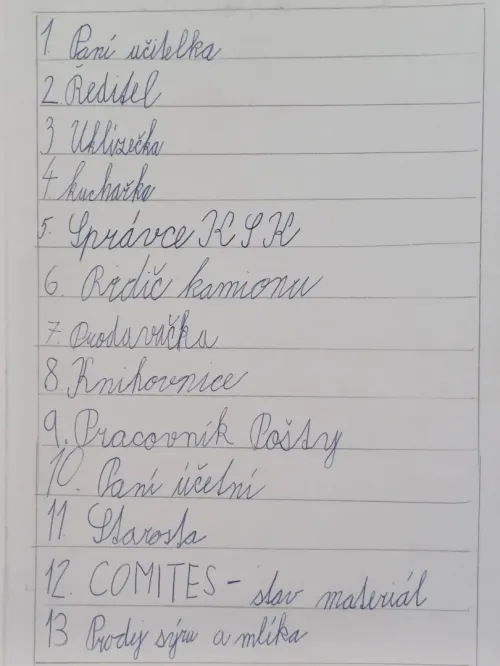 1. Paní učitelka
2. Ředitel
3 Uklízečka
4 kuchařka
5. Správce KSK
6. Řidič kamionu
7. Prodavačka
8. Knihovnice
9. Pracovník Pošty
10. Paní účetní
11. Starosta
12. COMITES - stav materiál
13 Prodej sýru a mlíka